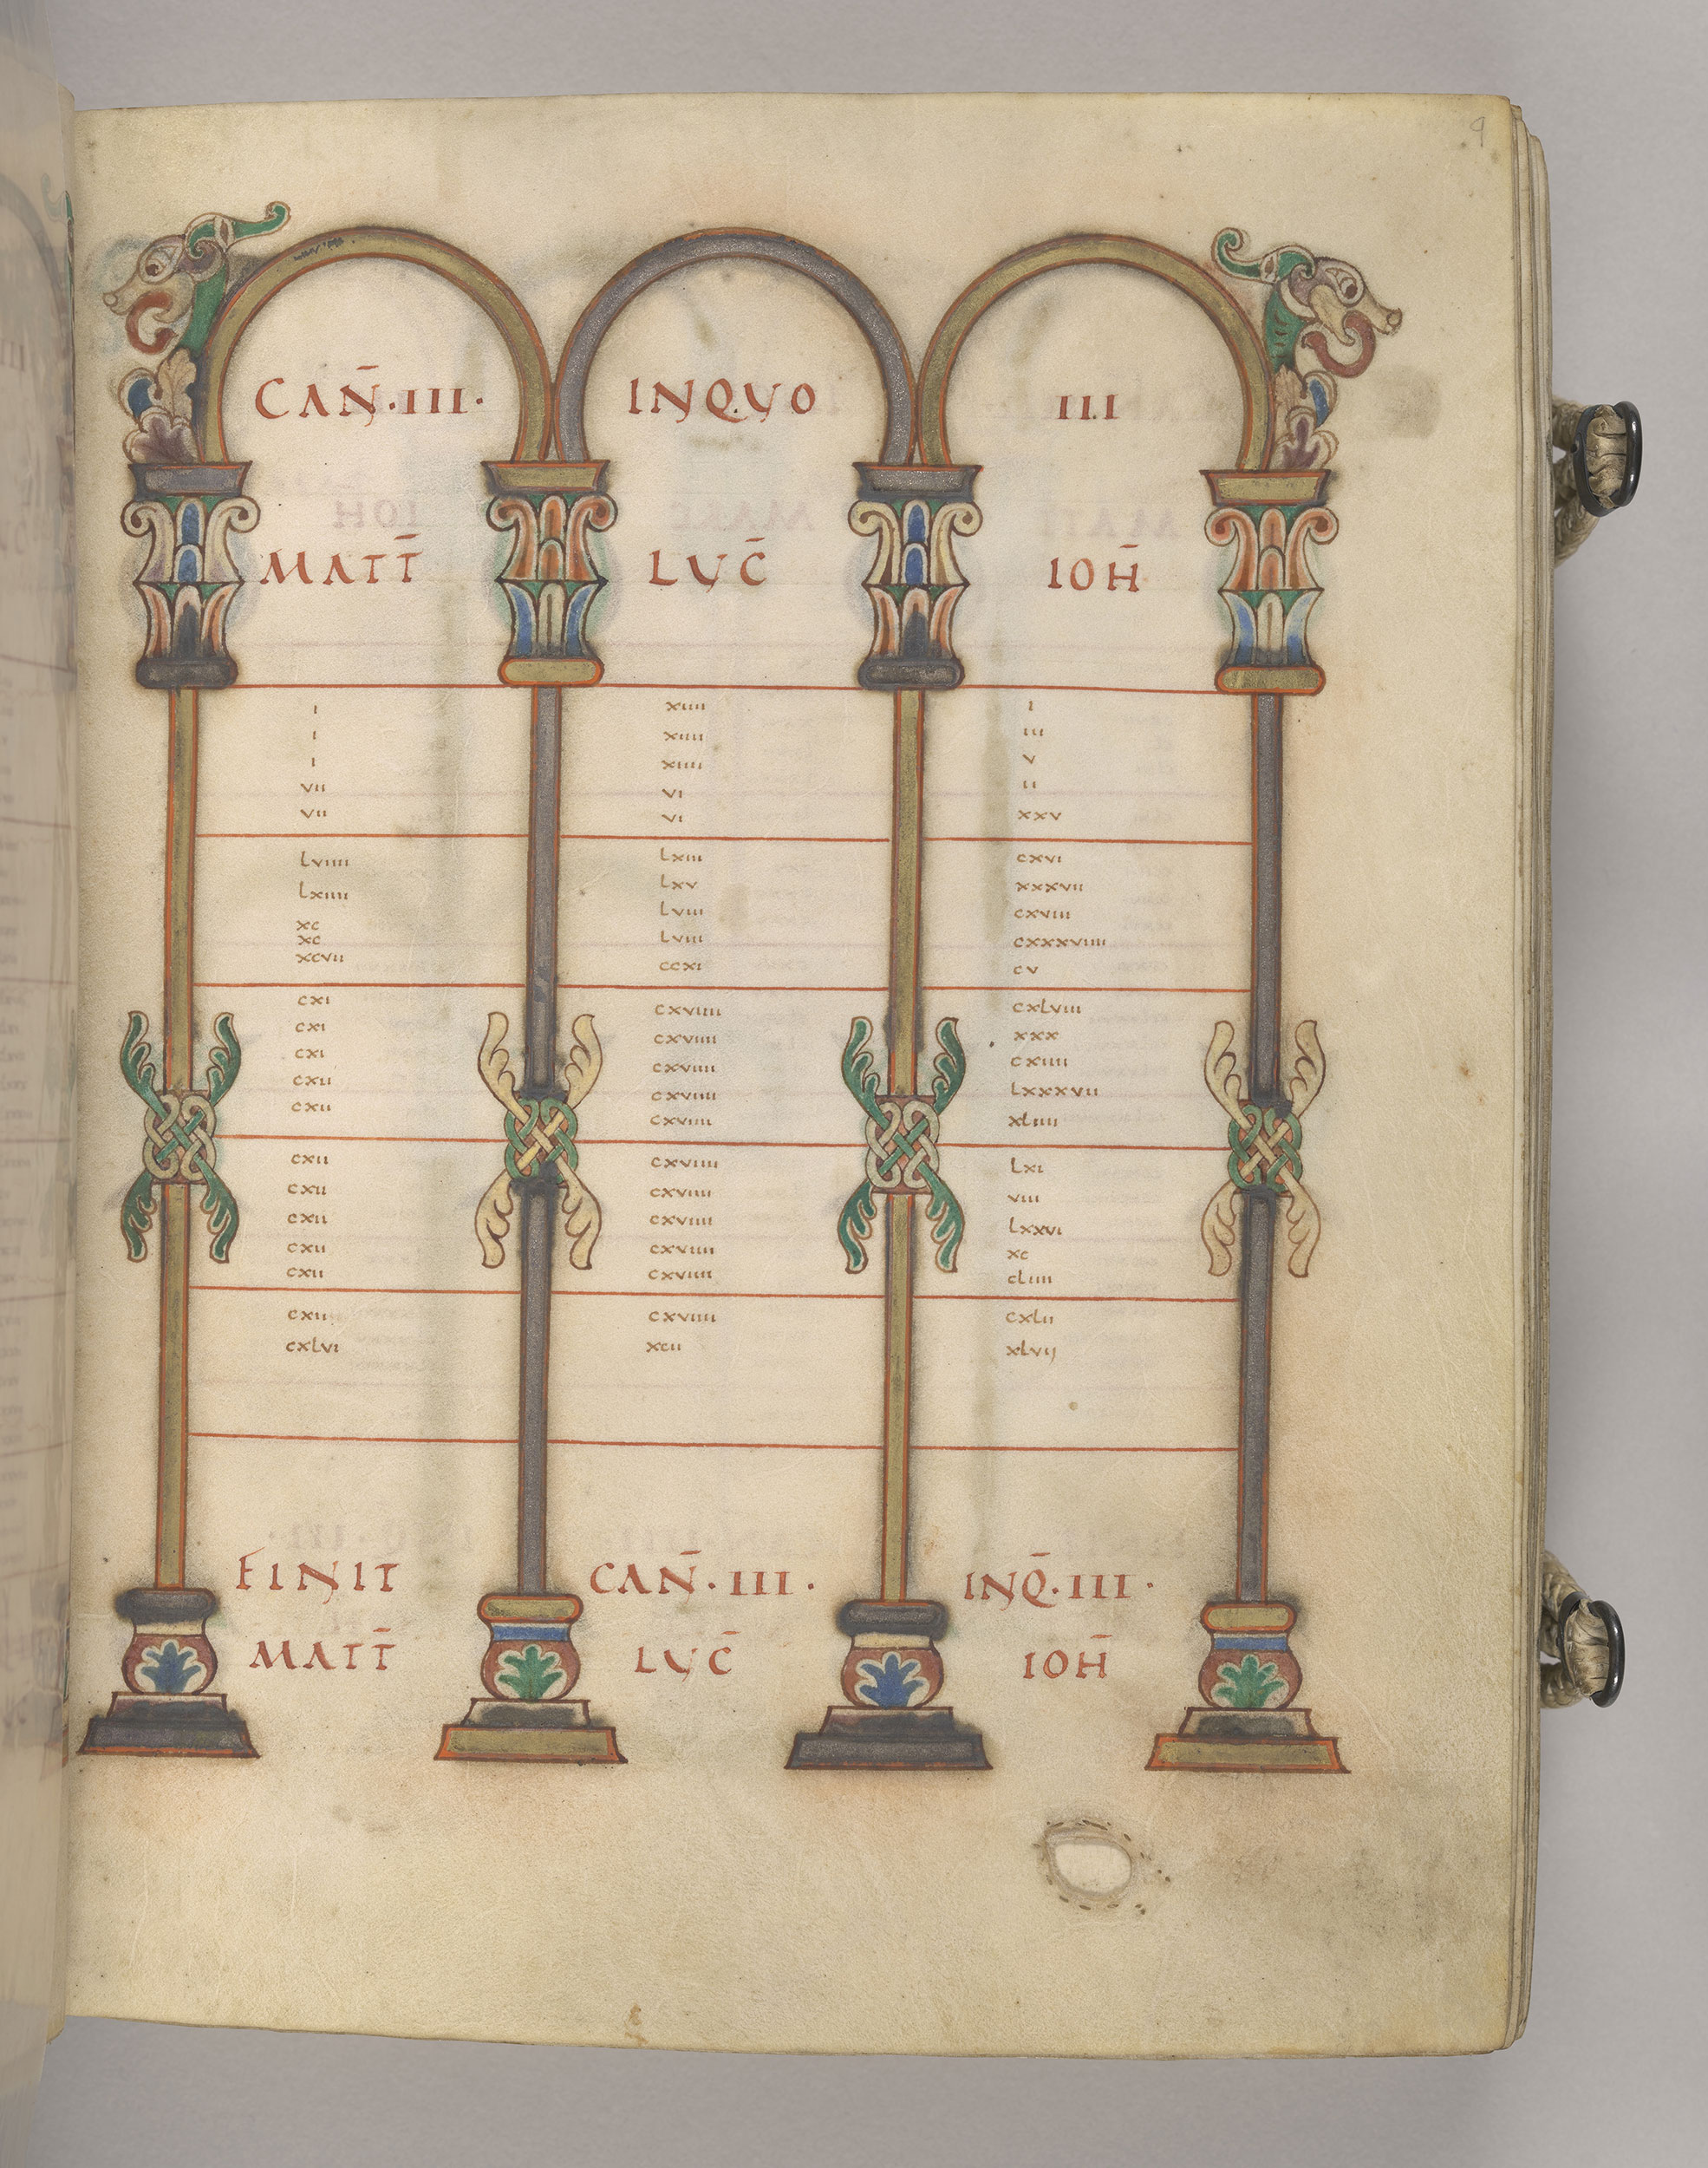 9
CAN̄·III· INQVO III
MATT̄ LVC̄ IOH̄
i xiiii i
i xiiii iii
i xiiii v
vii vi ii
vii vi xxv
Lviiii Lxiii cxvi
Lxiiii Lxv xxxvii
xc Lviii cxviii
xc Lviii cxxxviiii
xcvii ccxi cv
cxi cxviiii cxLviii
cxi cxviiii xxx
cxi cxviiii cxiiii
cxii cxviiii Lxxxvii
cxii cxviiii xLiiii
cxii cxviiii Lxi
cxii cxviiii viii
cxii cxviiii Lxxvi
cxii cxviiii xc
cxii cxviiii cLiiii
cxii cxviiii cxLii
cxLvi xcii xLvij
FINIT CAN̄·III· INQ̄·III·
MATT̄ LVC̄ IOH̄